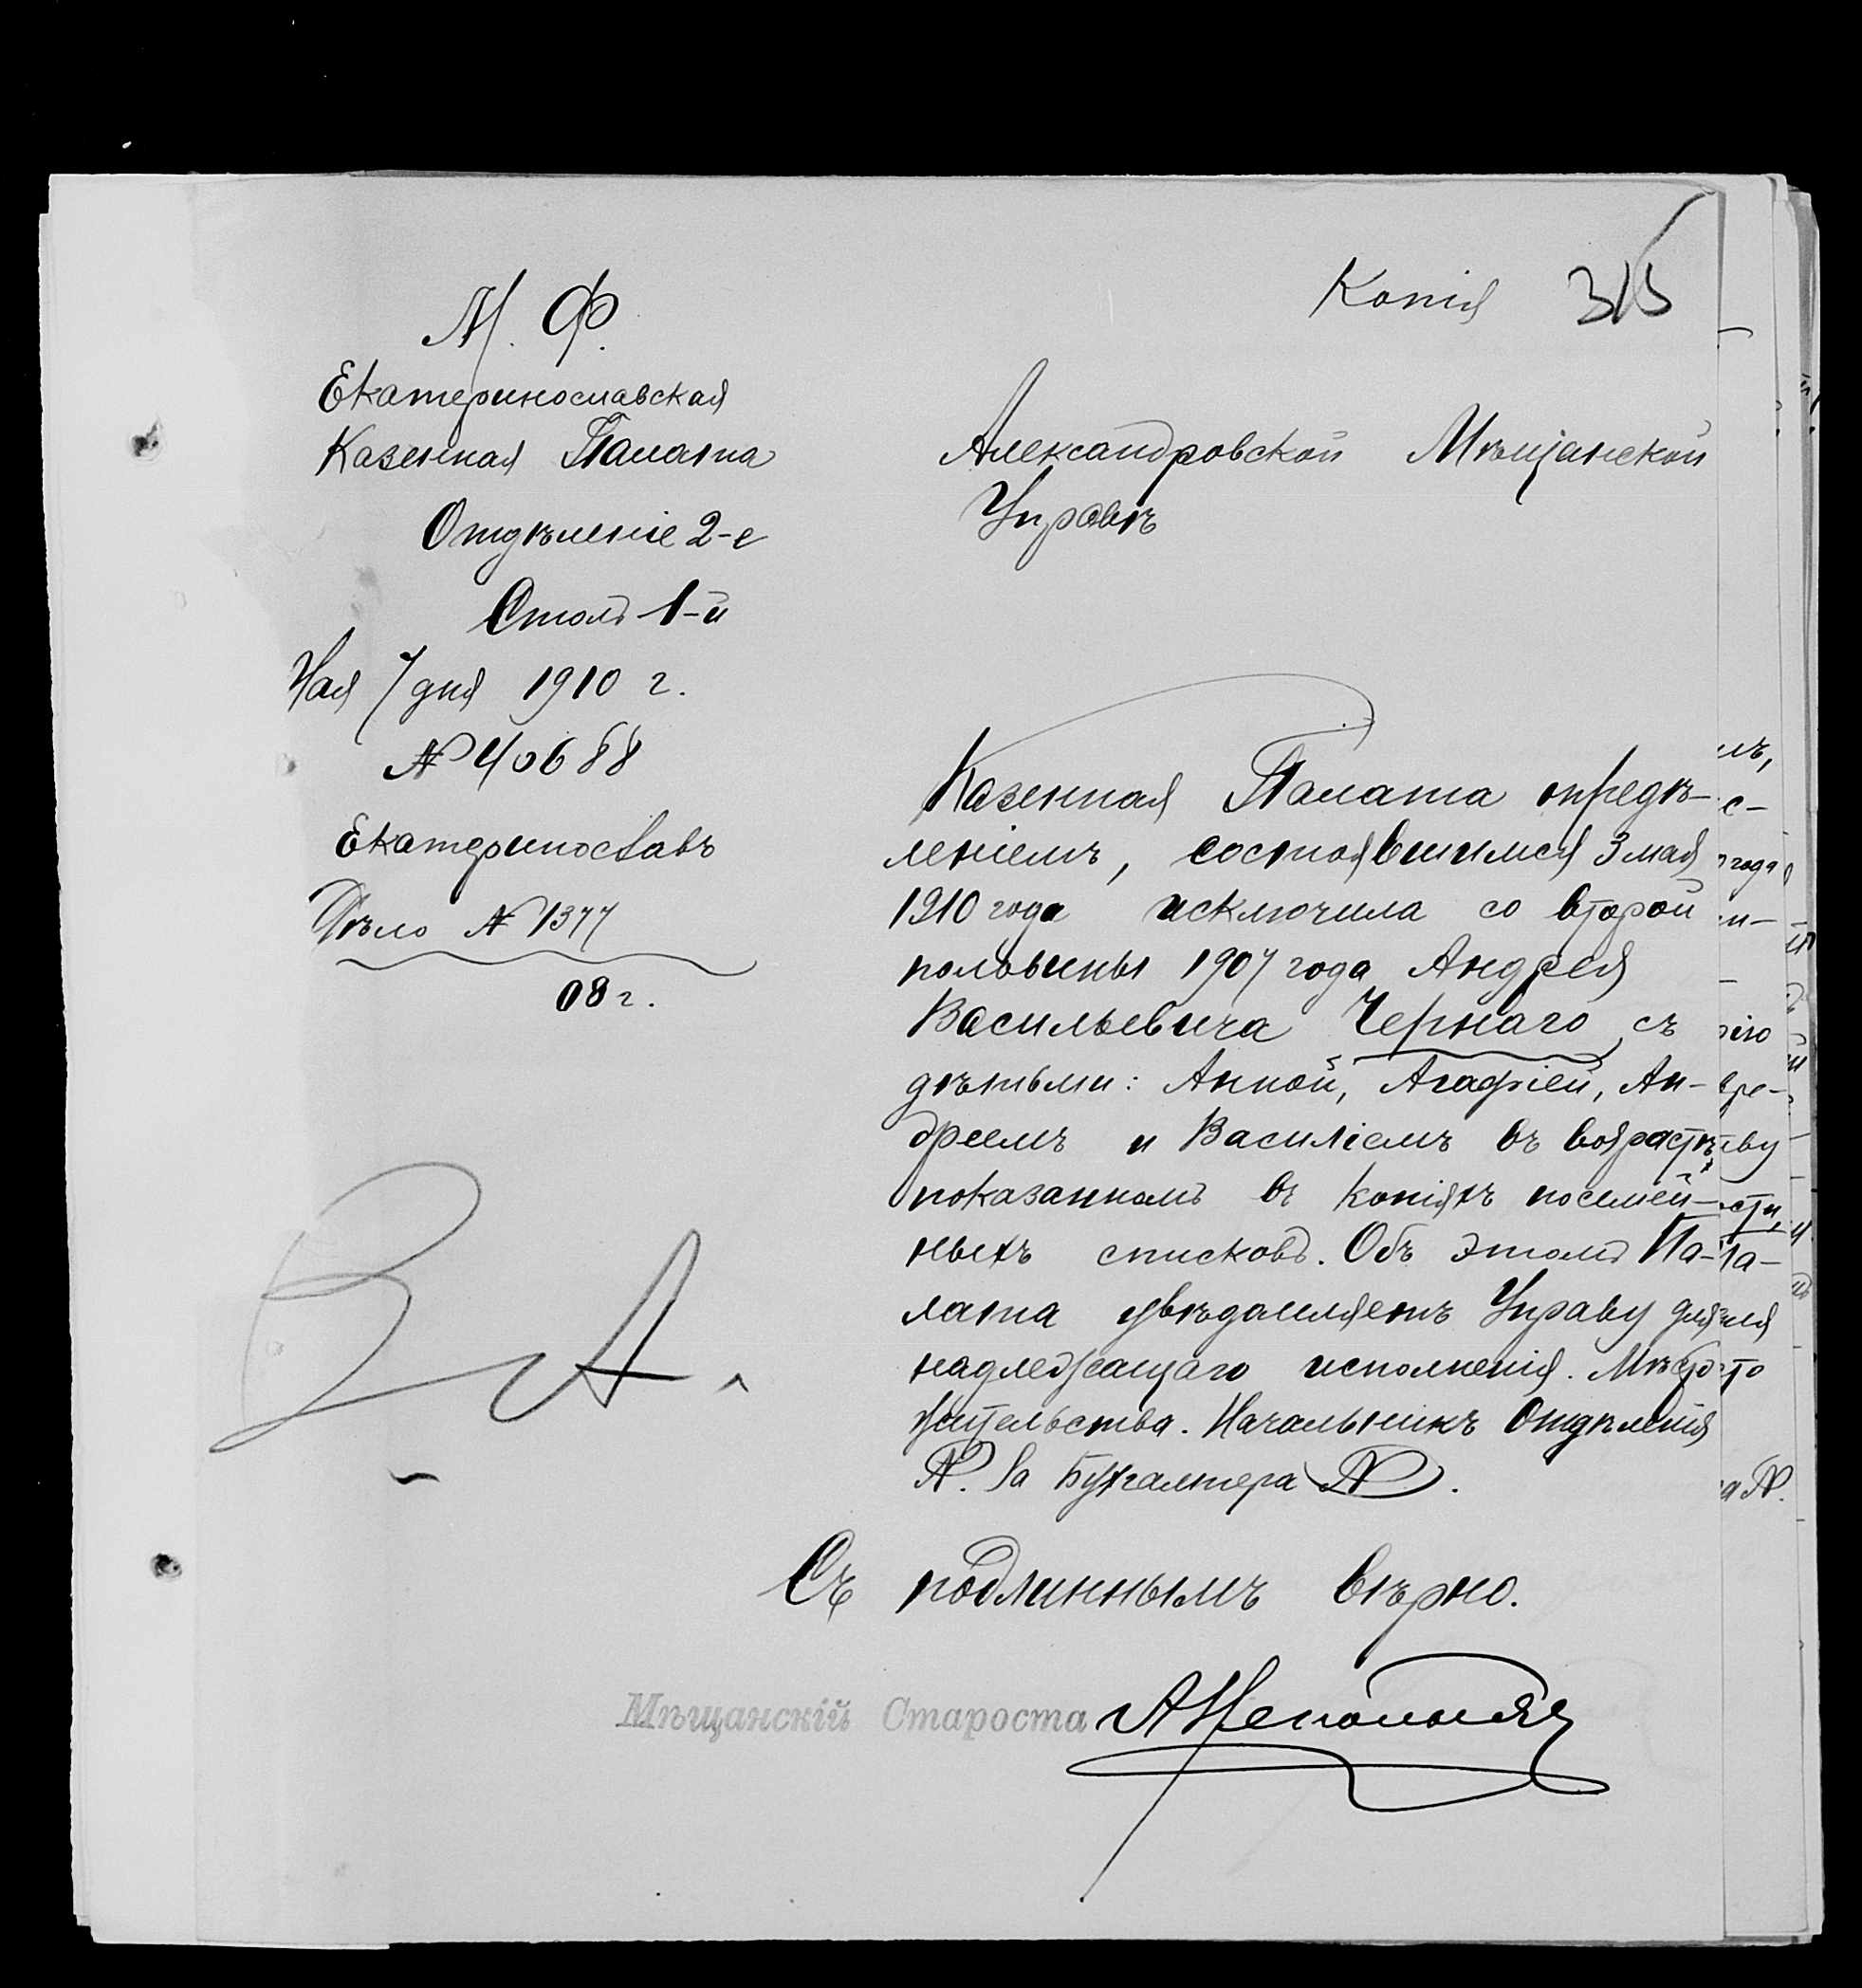 Копія 315
М. Ф.
Екатеринославская
Казенная Палата
Отдѣленіе 2-е
Столъ 1-й
Мая 7 дня 1910 г.
№ 40688
Екатеринославъ
Дѣло № 1377
08 г.
Александровской Мѣщанской
Управѣ
Казенная Палата опредѣ-
леніемъ, состоявшимся 3 мая
1910 года исключила со второй
половины 1907 года Андрея
Васильевича Чернаго съ
дѣтьми: Анной, Агафіей, Ан-
дреемъ и Василіемъ въ возрастѣ,
показанномъ въ копіяхъ посемей-
ныхъ списковъ. Объ этомъ Па-
лата увѣдомляетъ Управу для
надлежащаго исполненія. Мѣсто
жительства. Начальникъ Отдѣленія
N. За Бухгалтера N.
Съ подлиннымъ вѣрно.
Мѣщанскій Староста